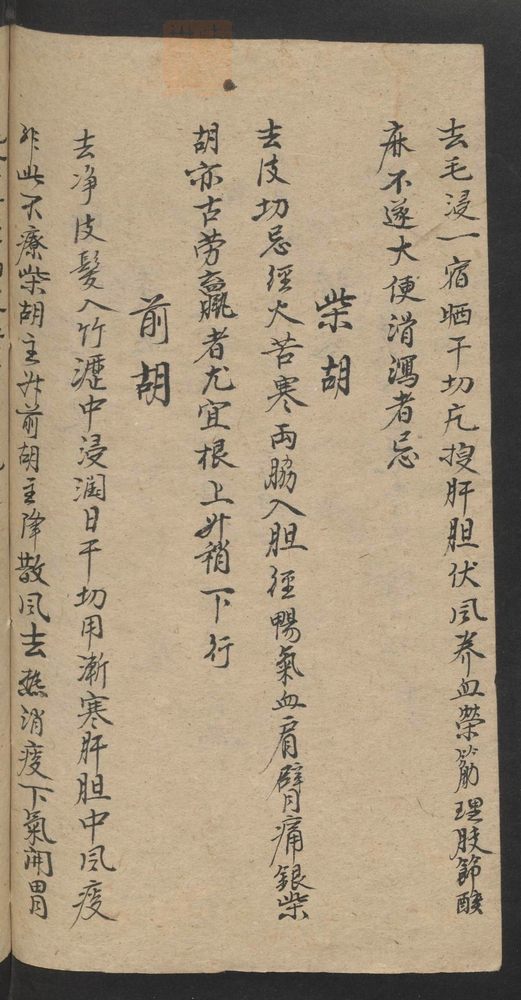 去毛浸一宿晒干切片搜肝胆伏风养血荣筋理肢節酸
麻不遂大便滑瀉者忌
柴胡
去皮切忌经火苦寒两脇入胆径暢氣血肩臂痛銀柴
胡亦古劳羸者尤宜根上升稍下行
前胡
去净皮髮入竹瀝中浸润日干切用渐寒肝胆中风痰
非此不療柴胡主升前胡主降散风去热消痰下氣開胃